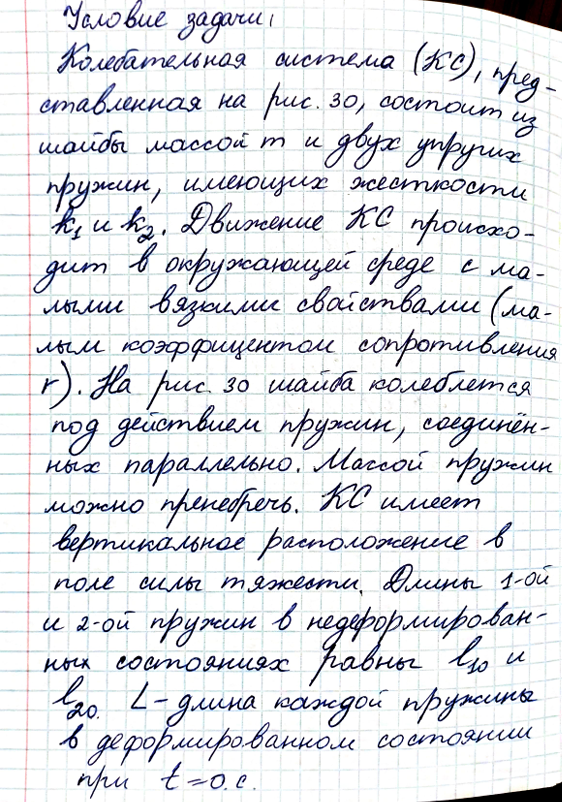 Условие задачи,
Колебательная система (КС), пред-
ставленная на рис. 30, состоит из
шайбы массой m и двух упругих
пружин, имеющих жесткости
k₁ и k₂. Движение КС происхо-
дит в окружающей среде с ма-
лыми вязкими свойствами (ма-
лым коэффицентом сопротивления
r). На рис. 30 шайба колеблется
под действием пружин, соединён-
ных параллельно. Массой пружин
можно пренебречь. КС имеет
вертикальное расположение в
поле силы тяжести. Длины 1-ой
и 2-ой пружин в недеформирован-
ных состояниях равны l₁₀ и
l₂₀. L - длина каждой пружины
в деформированном состоянии
при t = 0.с.